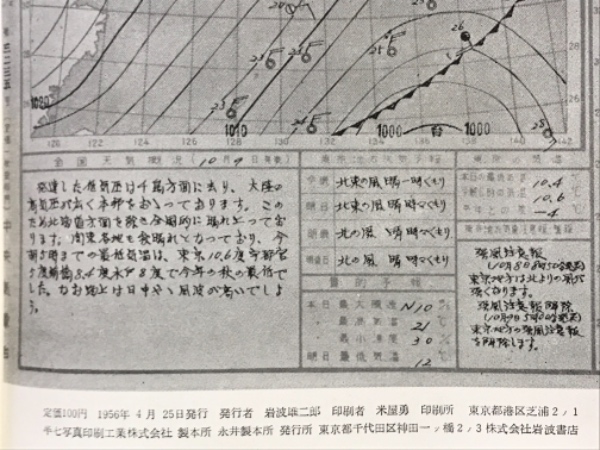 1020
1010
1000 台 1000
26
25
120 122 124 126 128 130 132 134 136 138 140 142
28
26
全国天気概況 (10月9日発表)
発達した低気圧は千島方面に去り、大陸の
高気圧が広く本邦をおおっております。この
ため北海道方面を除き全国的に晴れとなってお
ります。関東各地も秋晴れとなっており、今
朝9時までの最低気温は、東京10.6度宇都宮
8.4度水戸8度で今年の秋の最低で
した。なお海上は日中やゝ風波が高いでしょ
う。
今晩 北東の風 晴一時くもり
明日 北東の風 晴時々くもり
明晩 北の風 晴時々くもり
明後日 北の風 晴時々くもり
量的予報
本日最大風速 N10 %
最高気温 21℃
最小湿度 30%
明日最低気温 12
本日の最低気温 10.4℃
10.6
-4℃
強風注意報
東京地方は北よりの風が
強くなります。
強風注意報解除
東京地方の強風注意報
を解除します。
定価100円 1956年 4月 25日発行 発行者 岩波雄二郎 印刷者 米屋勇 印刷所 東京都港区芝浦2ノ1
半七写真印刷工業株式会社 製本所 永井製本所 発行所 東京都千代田区神田一ツ橋2ノ3 株式会社岩波書店